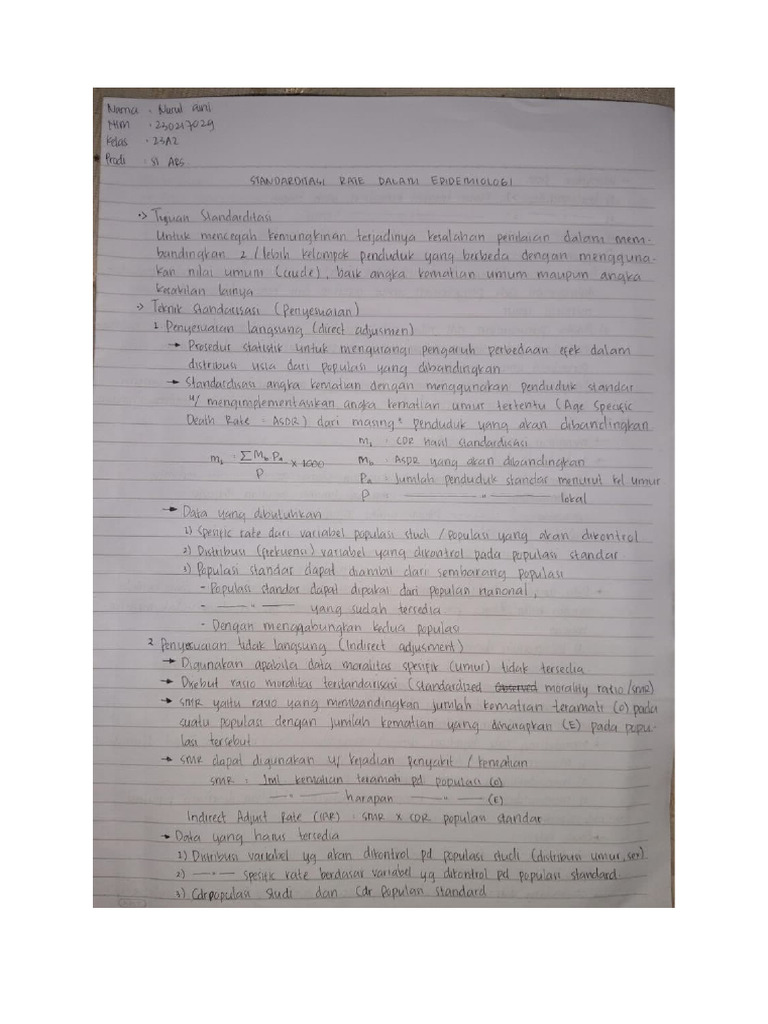 Nama : Nurul Aini
NIM : 230217029
Kelas : 23A2
Prodi : S1 ARS
STANDARDITASI RATE DALAM EPIDEMIOLOGI
-> Tujuan Standarditasi
Untuk mencegah kemungkinan terjadinya kesalahan penilaian dalam mem-
bandingkan 2 / lebih kelompok penduduk yang berbeda dengan mengguna-
kan nilai umum (crude), baik angka kematian umum maupun angka
kesakitan lainya
-> Teknik Standarisasi (Penyesuaian)
1 Penyesuaian langsung (direct adjusmen)
→ Prosedur statistik untuk mengurangi pengaruh perbedaan efek dalam
distribusi usia dari populasi yang dibandingkan
→ Standardisasi angka kematian dengan menggunakan penduduk standar
u/ mengimplementasikan angka kematian umur tertentu (Age Specific
Death Rate : ASDR) dari masing² penduduk yang akan dibandingkan
m₁ : CDR hasil standardisasi
m₁ : ∑ Mₐ Pₐ / P x 1000
Mₐ : ASDR yang akan dibandingkan
Pₐ : Jumlah penduduk standar menurut kel umur
P —— " —— lokal
→ Data yang dibutuhkan
1) Spesific rate dari variabel populasi studi / populasi yang akan dikontrol
2) Distribusi (frekuensi) variabel yang dikontrol pada populasi standar
3) Populasi standar dapat diambil dari sembarang populasi
- Populasi standar dapat dipakai dari populasi nasional,
- —— " —— yang sudah tersedia
- Dengan menggabungkan kedua populasi
2 Penyesuaian tidak langsung (Indirect adjusment)
→ Digunakan apabila data moralitas spesifik (umur) tidak tersedia
→ Disebut rasio moralitas terstandarisasi (standardized Observed morality ratio /SMR)
→ SMR yaitu rasio yang membandingkan jumlah kematian teramati (O) pada
suatu populasi dengan jumlah kematian yang diharapkan (E) pada popu-
lasi tersebut
→ SMR dapat digunakan u/ kejadian penyakit / kematian
SMR : Jml kematian teramati pd populasi (O)
—— " —— harapan —— " —— (E)
Indirect Adjust Rate (IAR) : SMR x CDR populasi standar
→ Data yang harus tersedia
1) Distribusi variabel yg akan dikontrol pd populasi studi (distribusi umur, sex)
2) —— " —— spesific rate berdasar variabel yg dikontrol pd populasi standard
3) Cdr populasi studi dan Cdr populasi standard